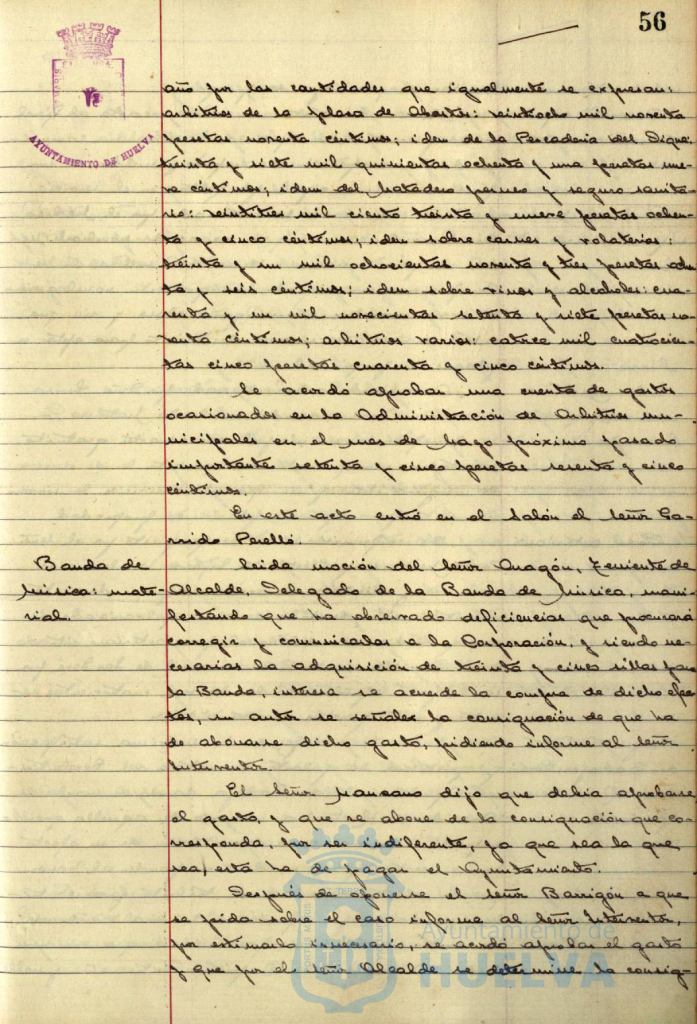 56
AYUNTAMIENTO DE HUELVA
año por las cantidades que igualmente se expresan:
arbitrios de la plaza de Abastos: veintiocho mil noventa
pesetas noventa céntimos; idem de la Pescaderia del Dique:
treinta y siete mil quinientas ochenta y una pesetas nue-
ve céntimos; idem del Matadero porcuno y seguro sanita-
rio: veintitres mil ciento treinta y nueve pesetas ochen-
ta y cinco céntimos; idem sobre carnes y volaterias:
treinta y un mil ochocientas noventa y tres pesetas ochen-
ta y seis céntimos; idem sobre vinos y alcoholes: cua-
renta y un mil novecientas setenta y siete pesetas no-
venta céntimos; arbitrios varios: catorce mil cuatrocien-
tas cinco pesetas cuarenta y cinco céntimos.
Se acordó aprobar una cuenta de gastos
ocasionados en la Administración de Arbitrios mu-
nicipales en el mes de Mayo próximo pasado
importante setenta y cinco pesetas sesenta y cinco
céntimos.
En este acto entró en el Salón el Señor Ga-
rrido Perelló.
Banda de
Música: mate-
rial.
Leida moción del Señor Aragón, Teniente de
Alcalde, Delegado de la Banda de Música, mani-
festando que ha observado deficiencias que procurará
corregir y comunicarlas a la Corporación, y siendo ne-
cesarias la adquisición de treinta y cinco sillas para
la Banda, interesa se acuerde la compra de dicho efec-
tos, su autor se señale la consignación de que ha
de abonarse dicho gasto, pidiendo informe al Señor
Interventor.
El Señor Manzano dijo que debia aprobarse
el gasto, y que se abone de la consignación que co-
rresponda, por ser indiferente, ya que sea la que
sea, esta ha de pagar el Ayuntamiento.
Después de oponerse el Señor Barrigón a que
se pida sobre el caso informe al Señor Interventor,
por estimarlo innecesario, se acordó aprobar el gasto
y que por el Señor Alcalde se determine la consig-
Ayuntamiento de
HUELVA